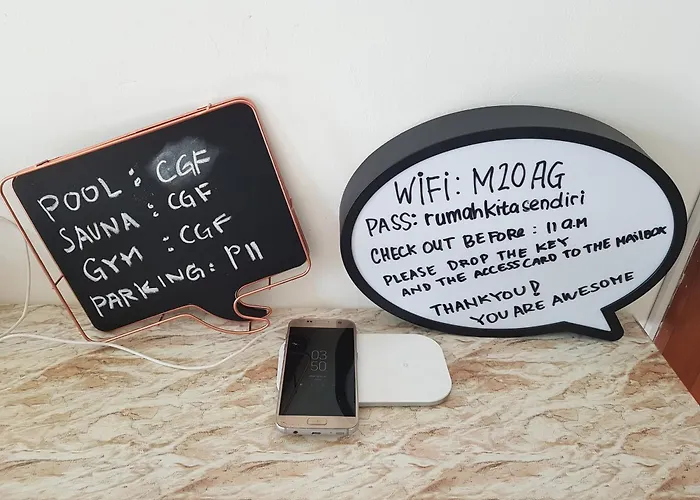 POOL : CGF
SAUNA : CGF
GYM : CGF
PARKING: P11
WiFi: M20AG
PASS: rumahkitasendiri
CHECK OUT BEFORE : 11 a.m
PLEASE DROP THE KEY
AND THE ACCESS CARD TO THE MAILBOX
THANKYOU!
YOU ARE AWESOME
03
50